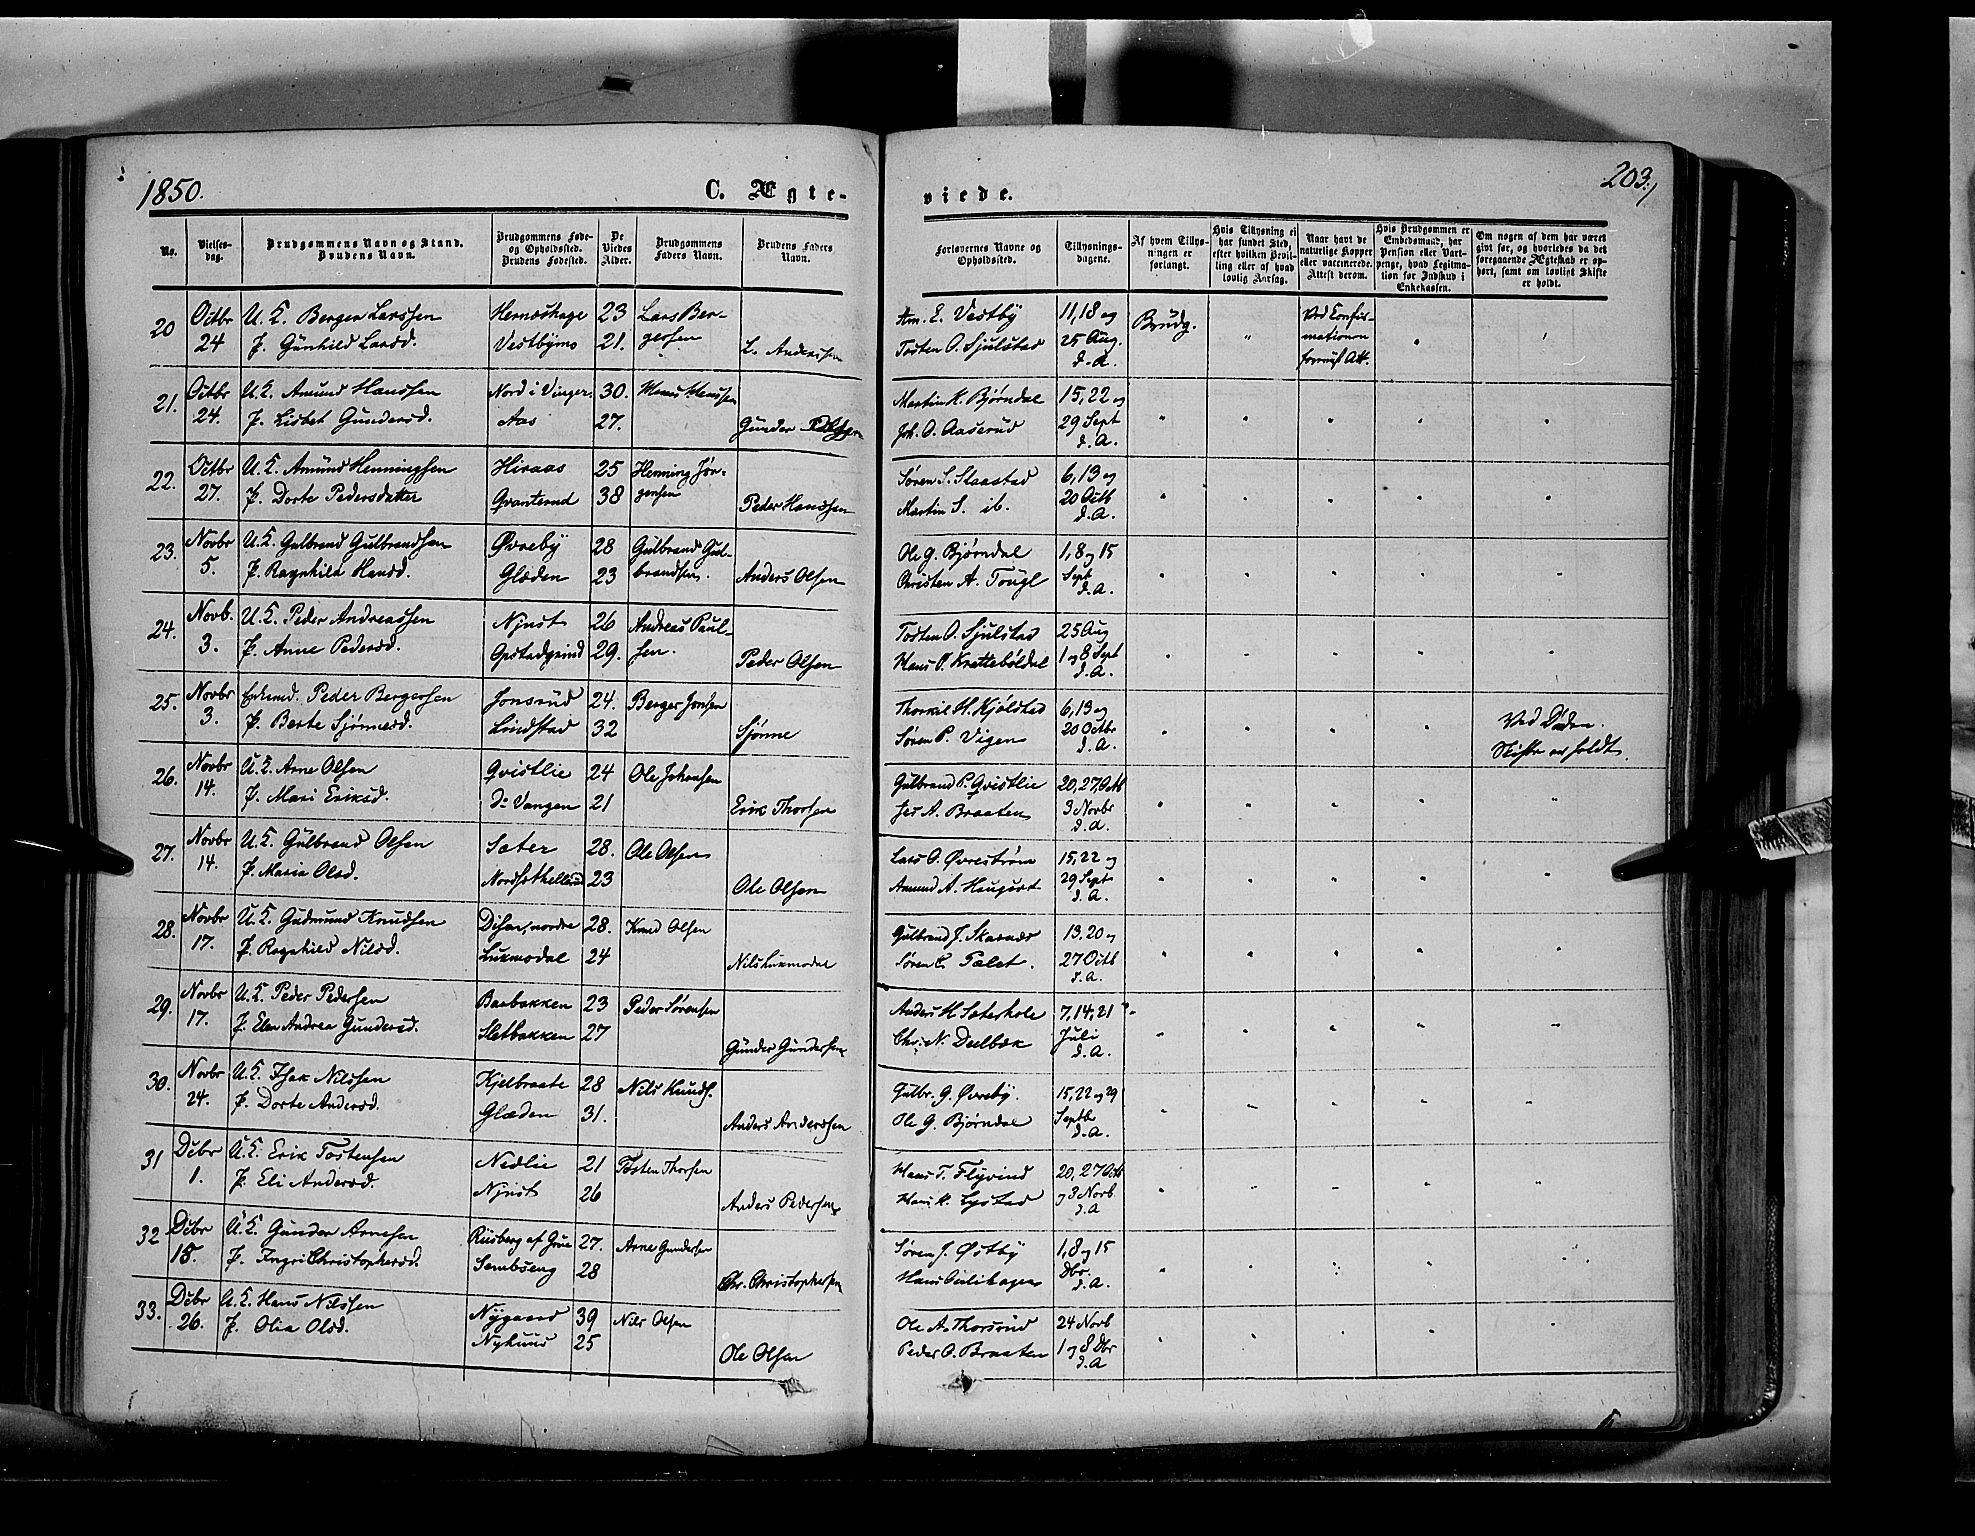 1850.
C. Ægte-
viede.
203.
No.
Vielses-
dag.
Brudgommens Navn og Stand.
Brudens Navn.
Brudgommens Føde-
og Opholdssted.
Brudens Fødested.
De
Viedes
Alder.
Brudgommens
Faders Navn.
Brudens Faders
Navn.
Forlovernes Navne og
Opholdssted.
Tillysnings-
dagene.
Af hvem Tillys-
ningen er
forlangt.
Hvis Tillysning ei
har fundet Sted,
efter hvilken Bevil-
ling eller af hvad
lovlig Aarsag.
Naar havt de
naturlige Kopper
eller vaccinerede.
Attest derom.
Hvis Brudgommen er
Embedsmand, har
Pension eller Vart-
penge, hvad Legitima-
tion for Indskud i
Enkekassen.
Om nogen af dem har været
gift før, og hvorledes da det
foregaaende Ægteskab er op-
hørt, samt om lovligt Skifte
er holdt.
20 Octbr 24 U. K. Berger Larssen Hernæshage 23 Lars Ber-
gersen
P. Gunhild Larsd. Vestbymo 21. L. Anderssen
Am. E. Vestby 11, 18 og
Tosten O. Sjulstad 25 Aug.
d. A.
Brudg. " Ved Confir-
mationen
fremvist Att. "
21. Octbr 24. U. K. Amund Hanssen Nord i Vinger 30. Hans Hanssen
P. Lisbet Gundersd. Aas 27. Gunder
Martin K. Bjørndal 15, 22 og
Joh. O. Aaserud 29 Sept
d. A.
22. Octbr 27. U. K. Amund Henningsen Hiraas 25 Henning Jør-
gensen
P. Dorte Pedersdatter Qvanterud 38 Peder Hanssen
Søren S. Slaastad 6, 13 og
Martin S. ib. 20 Octb
d. A.
23. Novbr 5. U. K. Gulbrand Gulbrandsen Øvreby 28 Gulbrand Gul-
brandsen.
P. Ragnhild Hansd. Glæden 23 Anders Olsen
Ole G. Bjørndal 1, 8 og 15
Christen A. Tougl Sept
d. A.
24. Novb. 3. U. K. Peder Andreassen Njust 26 Andreas Paul-
sen.
P. Anne Pedersd. Opstadgrind 29. Peder Olsen
Tosten O. Sjulstad 25 Aug
Hans O. Krattebøldal 1 og 8 Sept
d. A.
25. Novbr 3. Enkemd. Peder Bergersen Jonsrud 24. Berger Jonsen
P. Berte Sjønnesd. Lindstad 32 Sjønne
Thorkil H. Kjølstad 6, 13 og
Søren P. Vigen 20 Octbr
d. A.
Ved Døden.
Skifte er holdt.
26. Novbr 14. U. K. Arne Olsen Qvistlie 24 Ole Johansen
P. Mari Eriksd. d: Vangen 21 Erik Thorsen
Gulbrand P. Qvistlie 20, 27. Octb
Jes A. Braaten 3 Novbr
d. A.
27. Novbr 14. U. K. Gulbrand Olsen Sæter 28. Ole Olsen
P. Maria Olsd. 23 Ole Olsen
Lars O. Øvrestrøm 15, 22 og
Amund A. Haugsæt 29 Sept
d. A.
28. Novbr 17. U. K. Gudmund Knudsen Disen, nordre 28. Knud Olsen
P. Ragnhild Nilsd. Luxmodal 24 Nils Luxmodal
Gulbrand J. Skarnæs 13, 20 og
Søren C. Pælet. 27 Octb
d. A.
29. Novbr 17. U. K. Peder Pedersen Barbakken 23 Peder Sørensen
P. Elen Andrea Gundersd. Sletbakken 27 Gunder Gundersen
Anders H. Sæterhole 7, 14, 21
Chr. N. Deelbæk Juli
d. A.
30. Novbr 24. U. K. Isak Nilssen Kjelbraate 28 Nils Knuds.
P. Dorte Andersd. Glæden 31. Anders Anderssen
Gulbr. G. Øvreby. 15, 22 og 29
Ole G. Bjørndal Septb
d. A.
31 Dcbr 1. U. K. Erik Tostensen Nedlie 21 Tosten Thorsen
P. Eli Andersd. Njust 26 Anders Pedersen
Hans T. Flyvind 20, 27 Octb
Hans K. Lystad og 3 Novb
d. A
32 Dcbr 15. U. K. Gunder Arnesen Riisberg af Grue 27. Arne Gundersen
P. Ingri Christophersd. Sembseng 28 Chr. Christophersen
Søren J. Østby 1, 8 og 15
Hans Dbr.
d. A.
33. Dcbr 26. U. K. Hans Nilssen Nygaard 39 Nils Olsen
P. Olia Olsd. Nyhuus 25 Ole Olsen
Ole A. Thorsrud 24 Novb
Peder O. Braaten 1 og 8 Dbr
d. A